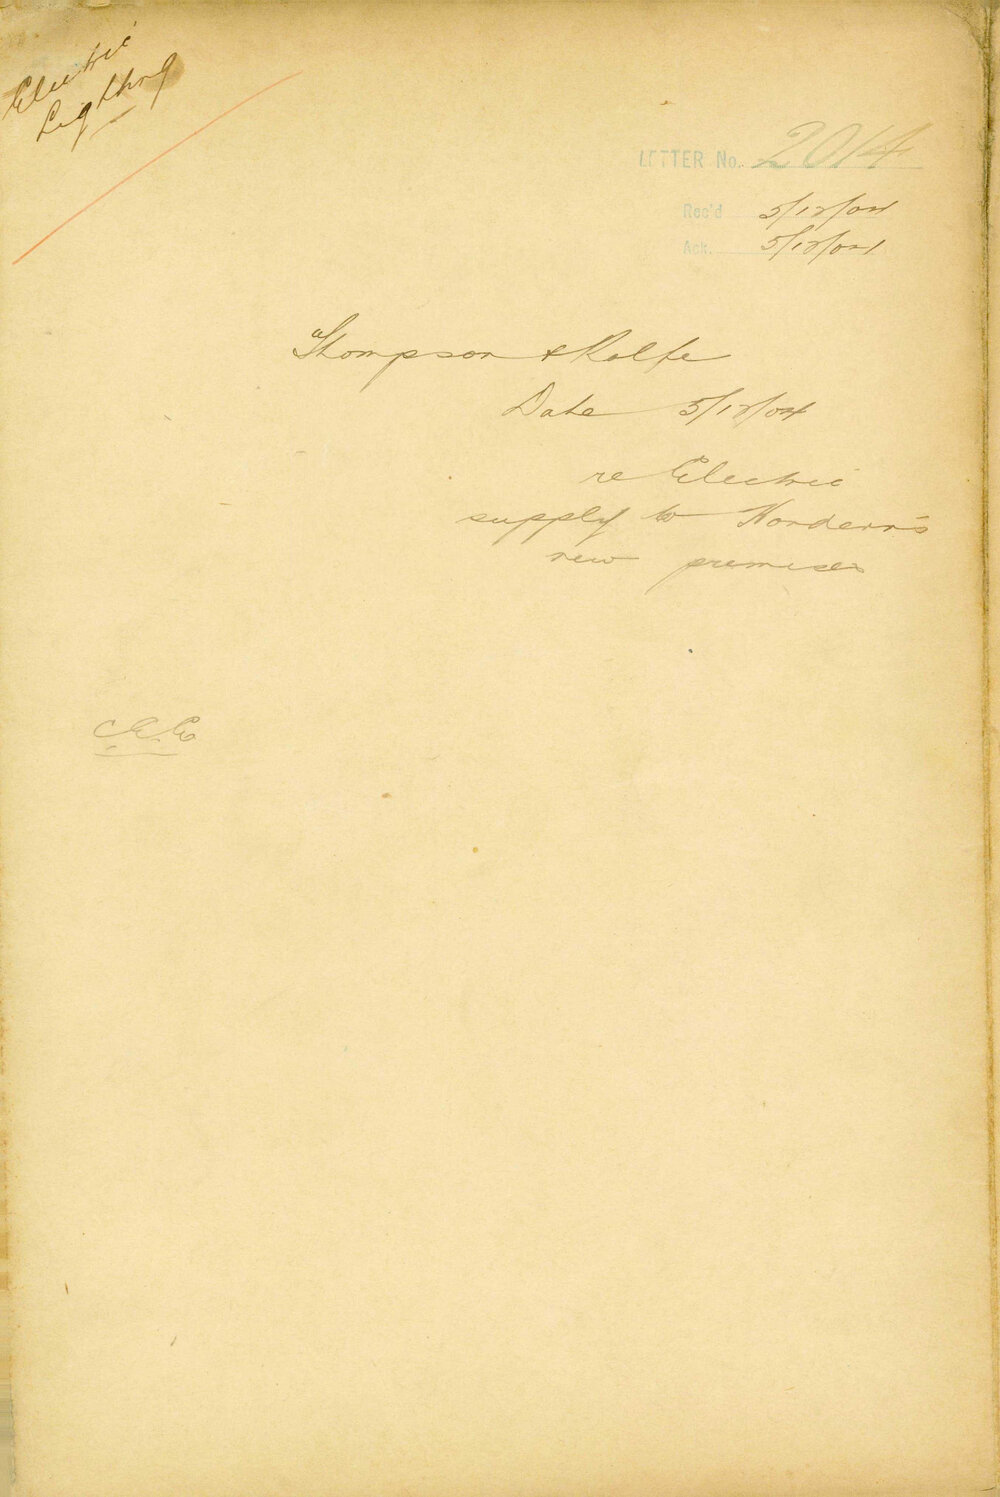 Electric
Lighting
LETTER No. 2014
Rec'd 5/12/04
Ack. 5/12/04
Thompson & Rolfe
Date 5/12/04
re Electric
supply to Hordern's
new premises